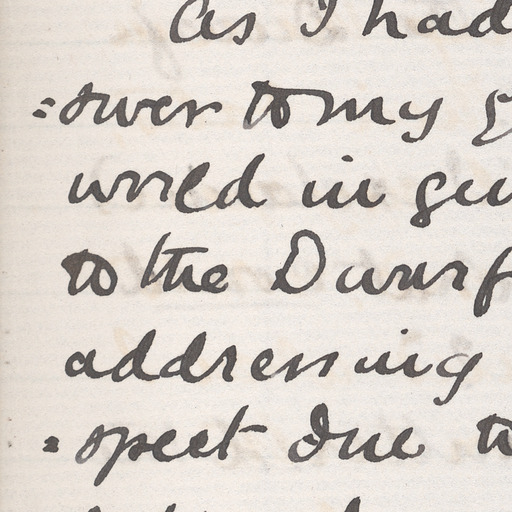 As I had
=swer to my
world in gen
to the Dwarf
addressing
=spect due to